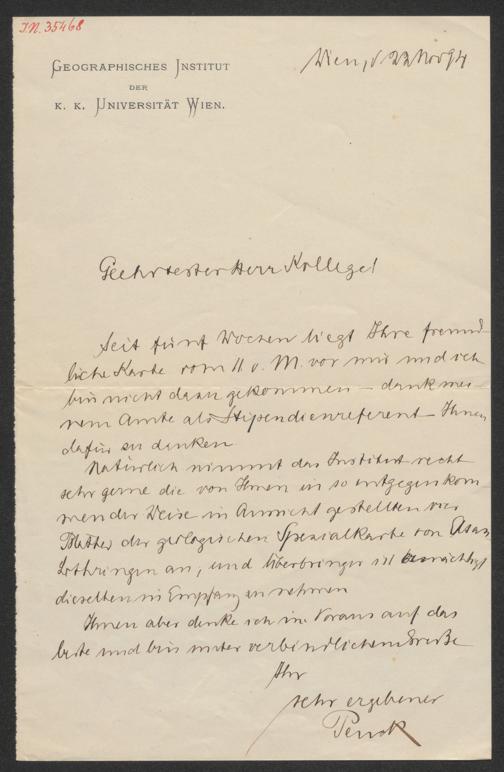 I.N. 35468
Wien, d 22 Nov 94
GEOGRAPHISCHES INSTITUT
DER
K. K. UNIVERSITÄT WIEN.
Geehrtester Herr Kollege!
Seit fünf Wochen liegt Ihre freund-
liche Karte vom 11 v. M. vor mir und ich
bin nicht dazu gekommen – dank mei
nem Amte als Stipendienreferent – Ihnen
dafür zu danken
Natürlich nimmt das Institut recht
sehr gerne die von Ihnen in so entgegenkom
mender Weise in Aussicht gestellten vier
Blätter der geologischen Spezialkarte von Elsass
Lothringen an, und Überbringer ist ermächtigt
dieselben in Empfang zu nehmen
Ihnen aber danke ich im Voraus auf das
beste und bin unter verbindlichem Gruße
Ihr
sehr ergebener
Penck